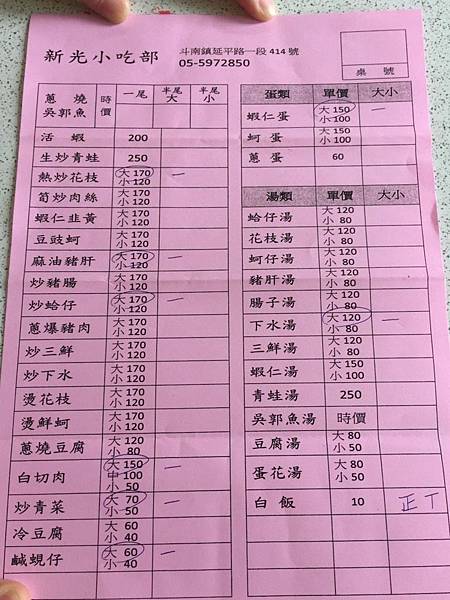 新光小吃部
斗南鎮延平路一段 414 號
05-5972850
桌 號
蔥燒吳郭魚 時價 一尾 半尾大 半尾小
活 蝦 200
生炒青蛙 250
熱炒花枝 大 170 小 120 一
筍炒肉絲 大 170 小 120
蝦仁韭黃 大 170 小 120
豆豉蚵 大 170 小 120
麻油豬肝 大 170 小 120 一
炒豬腸 大 170 小 120
炒蛤仔 大 170 小 120 一
蔥爆豬肉 大 170 小 120
炒三鮮 大 170 小 120
炒下水 大 170 小 120
燙花枝 大 170 小 120
燙鮮蚵 大 170 小 120
蔥燒豆腐 大 120 小 80
白切肉 大 150 中 100 小 50 一
炒青菜 大 70 小 50 一
冷豆腐 大 60 小 40
鹹蜆仔 大 60 小 40 一
蛋類 單價 大小
蝦仁蛋 大 150 小 100 一
蚵 蛋 大 150 小 100
蔥 蛋 60
湯類 單價 大小
蛤仔湯 大 120 小 80
花枝湯 大 120 小 80
蚵仔湯 大 120 小 80
豬肝湯 大 120 小 80
腸子湯 大 120 小 80
下水湯 大 120 小 80 一
三鮮湯 大 120 小 80
蝦仁湯 大 150 小 100
青蛙湯 250
吳郭魚湯 時價
豆腐湯 大 80 小 50
蛋花湯 大 80 小 50
白 飯 10 正丅